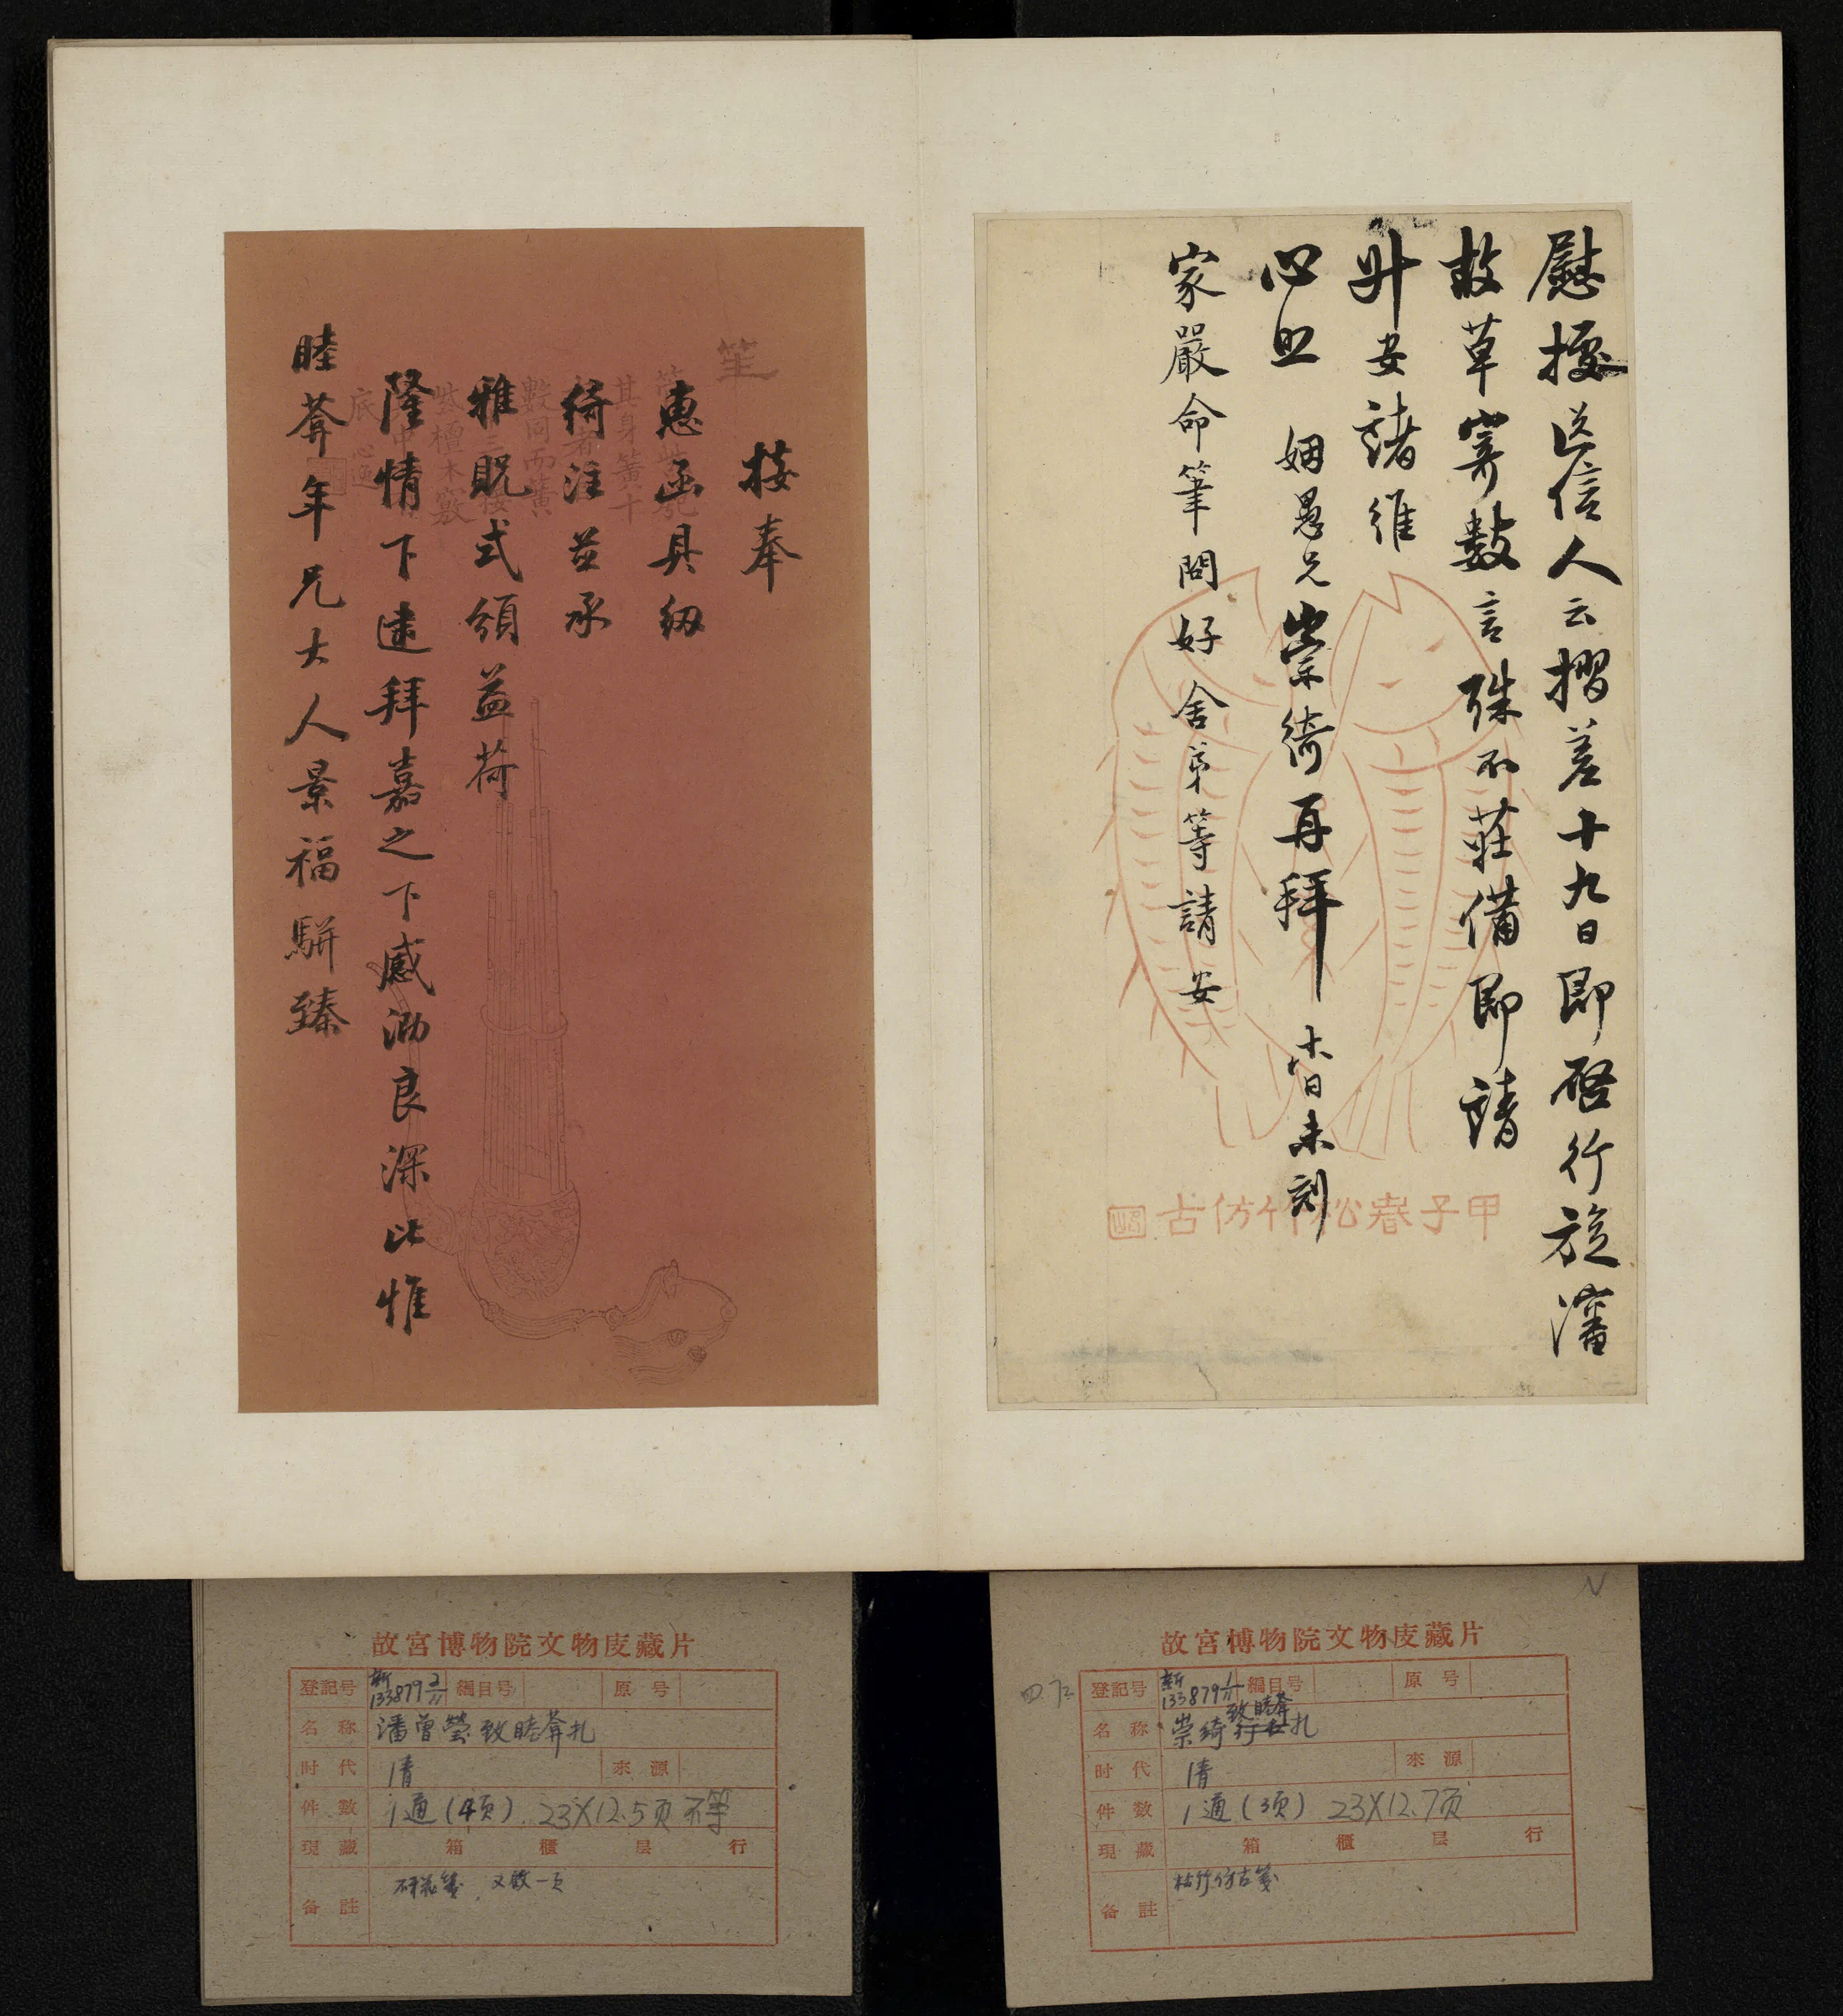 慰據送信人云摺差十九日即啓行旋瀋
故草寄數言殊不莊備即請
升安諸維
心照 姻愚兄崇綺再拜 十六日未刻
家嚴命筆問好 舍弟等請安
甲子春松竹仿古
接奉
惠函具紉
綺注並承
雅貺式頒益荷
隆情下逮拜嘉之下感泐良深比惟
睦葊年兄大人景福駢臻
笙
其身簧十
數同而簧
紫檀木竅
故宮博物院文物庋藏片
登記号 新133879 1/11 編目号 原号
名称 崇綺致睦葊札
时代 清 來源
件数 1通(3页) 23X12.7页
現藏 箱 櫃 层 行
备註 松竹仿古笺
故宮博物院文物庋藏片
登記号 新133879 2/11 編目号 原号
名称 潘曾瑩致睦葊札
时代 清 來源
件数 1通(4页) 23X12.5页不等
現藏 箱 櫃 层 行
备註 研花笺 又散一页